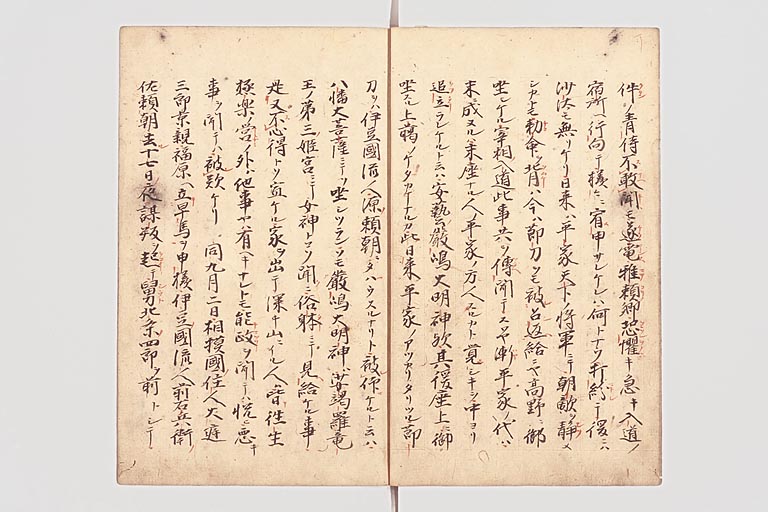 件ノ青侍不敢聞モ遂電雅頼卿恐懼キ急キ入道ノ
宿所ヘ行向テ様々ニ宥申サレケレハ何トナク打納テ後ニハ
沙汰モ無リケリ日来ハ平家天下ノ将軍ニテ朝敵ヲ静メ
シカトモ勅命ヲ背ハ今ハ節刀ヲモ被召返給ニヤ高野ニ御
坐シケル宰相入道此事共ヲ傳聞テスハヤ漸平家ノ代ハ
末成又ルハ末座ナル人平家ノ方人シヒカト覚シキヲ中ヨリ
追立ラレケルト云ハ安藝ノ厳嶋大明神欤其後座上ニ御
坐スル上﨟ノケタカケナルカ此日来平家ノアツカリタリツル節
刀ハ伊豆國流人源頼朝ニタハウスルナリト被仰ケルト云ハ
八幡大菩薩ニテソ坐シツランソモ厳嶋大明神ハ沙竭羅竜
王ノ第三姫宮ニテ女神トコソ聞ニ俗躰ニテ見給ケル事
是又不心得トソ宣ケル家ヲ出テ深キ山ニイル人ハ昔往生
極楽ノ営ノ外ハ他事ヤハ有ヘキナレトモ能政ヲ聞テハ悦ニ悪キ
事ヲ聞テハ被歎ケリ 同九月二日相模國住人大庭
三郎景親福原ヘ立早馬ヲ申様伊豆國流人前右兵衛ノ
佐頼朝去十七日夜謀叛ヲ起テ舅北条四郎ヲ前トシテ